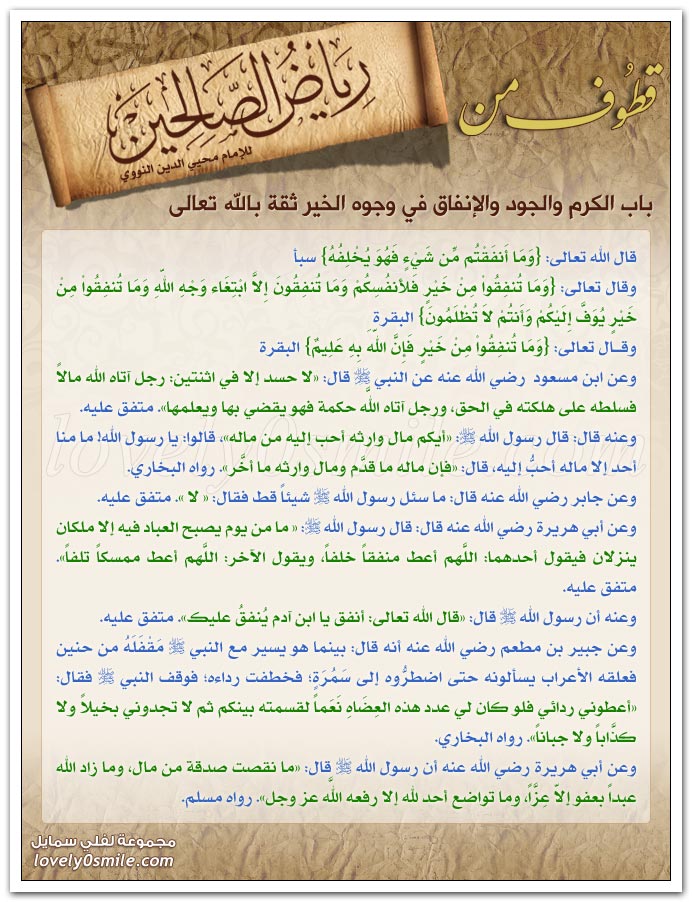 قطوف من
رياض الصالحين
للإمام محيي الدين النووي
باب الكرم والجود والإنفاق في وجوه الخير ثقة بالله تعالى
قال الله تعالى: {وَمَا أَنفَقْتُم مِّن شَيْءٍ فَهُوَ يُخْلِفُهُ} سبأ
وقال تعالى: {وَمَا تُنفِقُواْ مِنْ خَيْرٍ فَلأنفُسِكُمْ وَمَا تُنفِقُونَ إِلاَّ ابْتِغَاء وَجْهِ اللّهِ وَمَا تُنفِقُواْ مِنْ
خَيْرٍ يُوَفَّ إِلَيْكُمْ وَأَنتُمْ لاَ تُظْلَمُونَ} البقرة
وقـال تعالى: {وَمَا تُنفِقُواْ مِنْ خَيْرٍ فَإِنَّ اللّهَ بِهِ عَلِيمٌ} البقرة
وعن ابن مسعود رضي الله عنه عن النبي ﷺ قال: «لا حسد إلا في اثنتين: رجل آتاه الله مالاً
فسلطه على هلكته في الحق، ورجل آتاه اللَّه حكمة فهو يقضي بها ويعلمها». متفق عليه.
وعنه قال: قال رسول الله ﷺ: «أيكم مال وارثه أحب إليه من ماله»، قالوا: يا رسول الله! ما منا
أحد إلا ماله أحبُّ إليه، قال: «فإن ماله ما قدَّم ومال وارثه ما أخَّر». رواه البخاري.
وعن جابر رضي الله عنه قال: ما سئل رسول الله ﷺ شيئاً قط فقال: « لا ». متفق عليه.
وعن أبي هريرة رضي الله عنه قال: قال رسول الله ﷺ: « ما من يوم يصبح العباد فيه إلا ملكان
ينزلان فيقول أحدهما: اللَّهم أعط منفقاً خلفاً، ويقول الآخر: اللَّهم أعط ممسكاً تلفاً».
متفق عليه.
وعنه أن رسول الله ﷺ قال: «قال الله تعالى: أنفق يا ابن آدم يُنفقُ عليك». متفق عليه.
وعن جبير بن مطعم رضي الله عنه أنه قال: بينما هو يسير مع النبي ﷺ مَقْفَلَهُ من حنين
فعلقه الأعراب يسألونه حتى اضطرُّوه إلى سَمُرَةٍ؛ فخطفت رداءه؛ فوقف النبي ﷺ فقال:
«أعطوني ردائي فلو كان لي عدد هذه العِضَاهِ نَعَماً لقسمته بينكم ثم لا تجدوني بخيلاً ولا
كذَّاباً ولا جباناً». رواه البخاري.
وعن أبي هريرة رضي الله عنه أن رسول الله ﷺ قال: «ما نقصت صدقة من مال، وما زاد الله
عبداً بعفو إلاّ عِزّاً، وما تواضع أحد لله إلا رفعه اللَّه عز وجل». رواه مسلم.
lovely0smile.com
مجموعة لفلي سمايل
lovely0smile.com